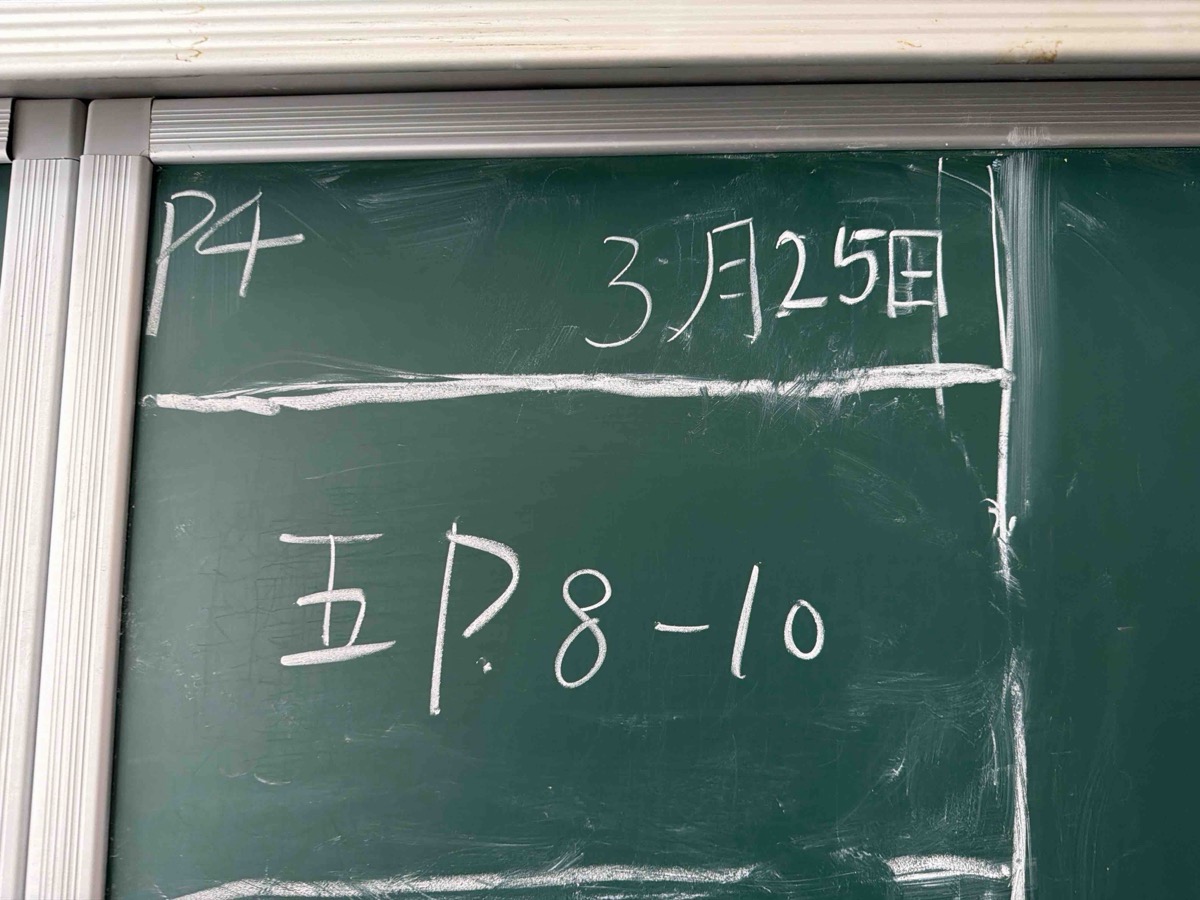 P4 3月25日
五 P.8-10